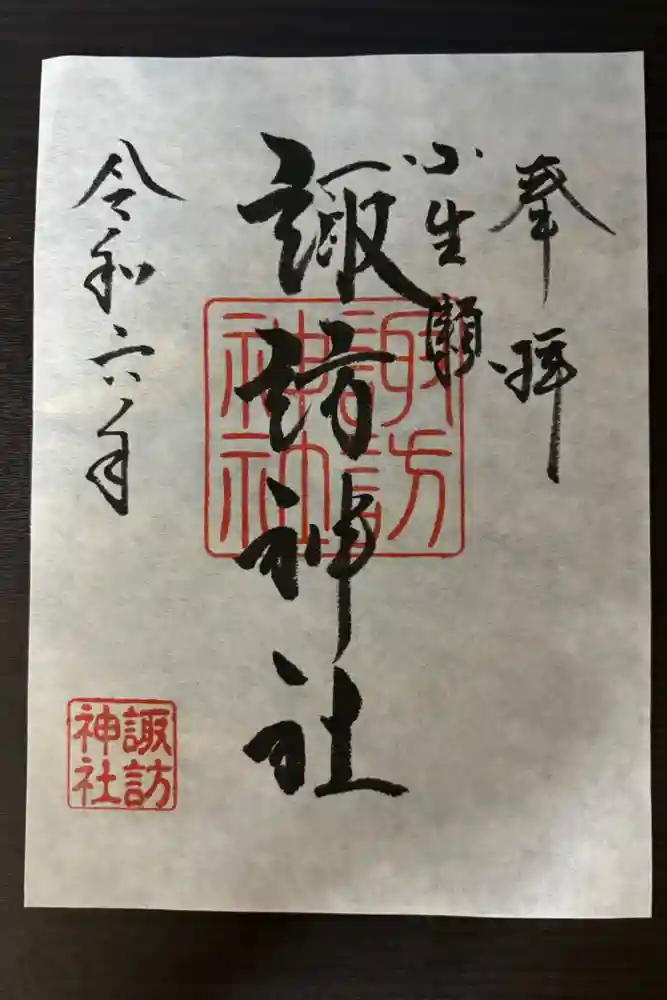 奉拝
小生瀬
諏訪神社
令和六年
諏訪
神社
諏訪
神社